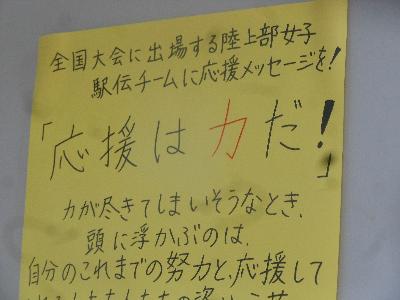 全国大会に出場する陸上部女子
駅伝チームに応援メッセージを！
「応援は力だ！」
力が尽きてしまいそうなとき、
頭に浮かぶのは、
自分のこれまでの努力と、応援して